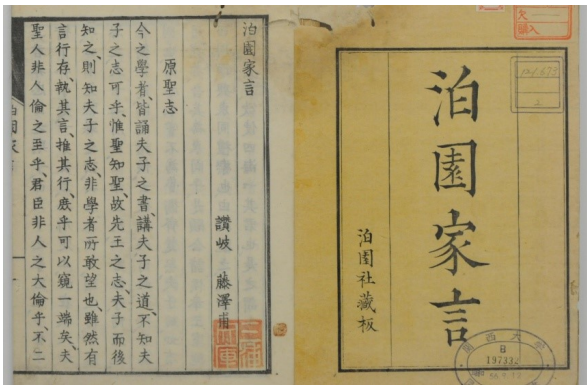 泊園家言
泊園社藏板
西大学
197332
泊園家言
原聖志
讃岐 藤澤甫
今之學者皆誦夫子之書、講夫子之道、不知夫
子之志可乎、惟聖知聖、故先王之志、夫子而後
知之、則知夫子之志、非學者所敢望也、雖然有
言行存、執其言、推其行、庶乎可以窺一端矣、夫
聖人非人倫之至乎、君臣非人之大倫乎、不二